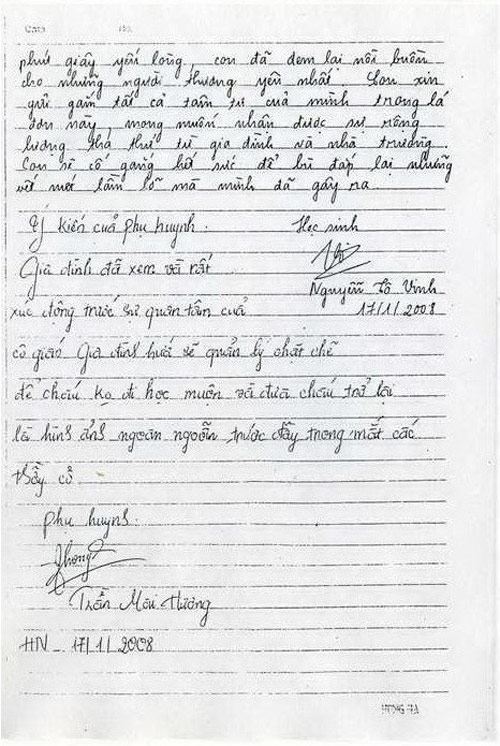 phút giây yếu lòng, con đã đem lại nỗi buồn
cho những người thương yêu nhất. Con xin
gửi gắm tất cả tâm tư của mình trong lá
đơn này, mong muốn nhận được sự rộng
lượng tha thứ từ gia đình và nhà trường.
Con sẽ cố gắng hết sức để bù đắp lại những
vết mà mình đã gây ra.
Ý kiến của phụ huynh. Học sinh
Gia đình đã xem và rất
Nguyễn Tô Vinh
xúc động trước sự quan tâm của 17/1/2008
cô giáo. Gia đình hứa sẽ quản lý chặt chẽ
để cháu ko đi học muộn và đưa cháu trở lại
là hình ảnh ngoan ngoãn trước đây trong mắt các
thầy cô
phụ huynh.
Trần Hương
HN - 17/1/2008
HONG HA